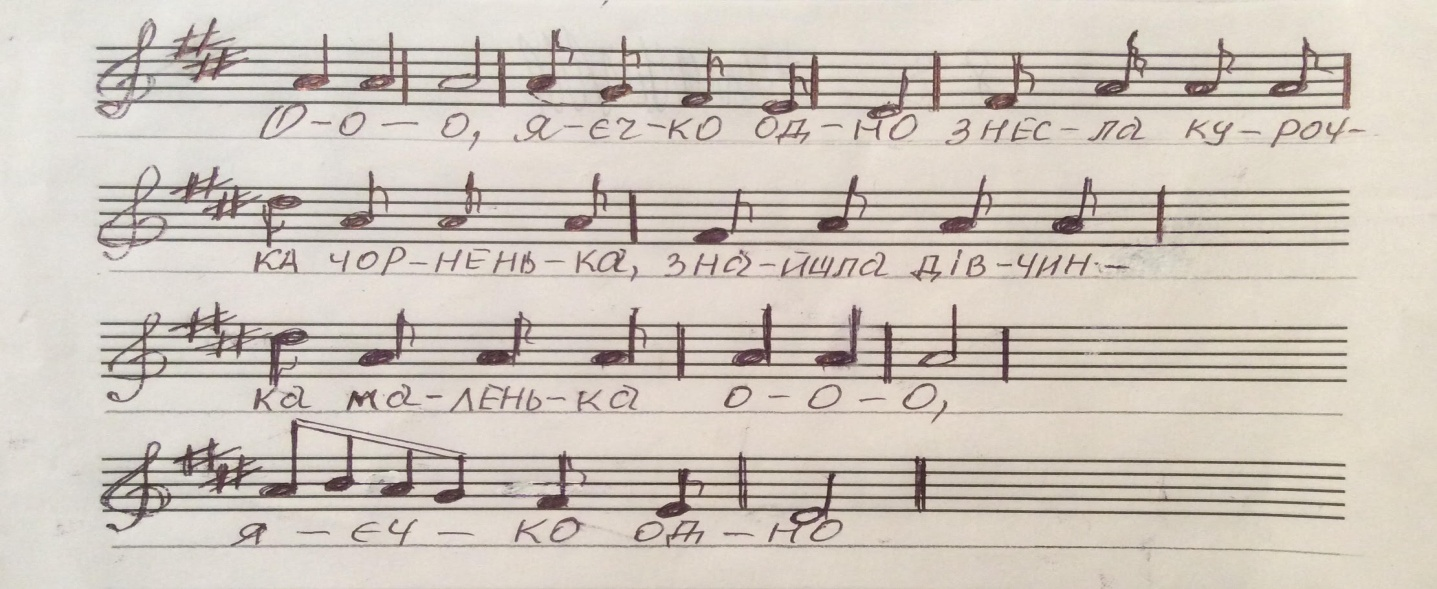 О-о-о, я-єч-ко од-но знес-ла ку-роч-
ка чор-нень-ка, зна-йшла дів-чин-
ка ма-лень-ка о-о-о,
я-єч-ко од-но